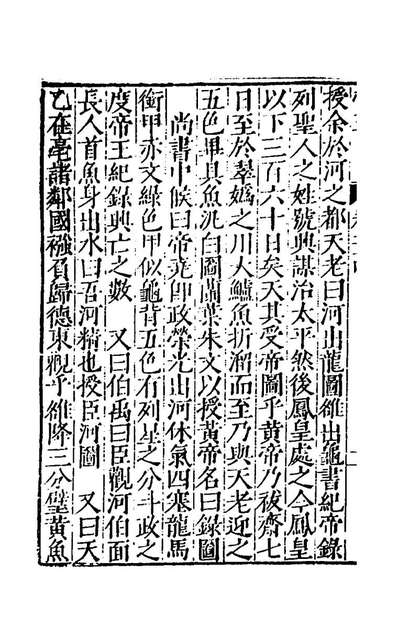 授余於河之都天老曰河出龍圖雒出龜書紀帝錄
列聖人之姓號興謀治太平然後鳳皇處之今鳳皇
以下三百六十日矣天其受帝圖乎黄帝乃祓齋七
日至於翠嬀之川大鱸魚折溜而至乃與天老迎之
五色畢具魚汎白圖蘭葉朱文以授黄帝名曰錄圖
尚書中候曰帝堯即政榮光出河休氣四塞龍馬
銜甲赤文綠色甲似龜背五色有列星之分斗政之
度帝王紀錄興亡之數　又曰伯禹曰臣觀河伯面
長人首魚身出水曰吾河精也授臣河圖　又曰天
乙在亳諸鄰國襁負歸德東觀乎雒降三分璧黄魚